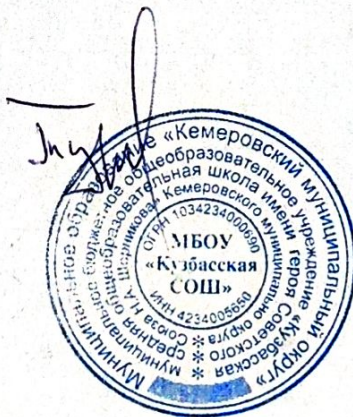 Муниципальное образование «Кемеровский муниципальный округ»
Муниципальное бюджетное общеобразовательное учреждение «Кузбасская
средняя общеобразовательная школа имени героя Советского
Союза Н.А. Шорникова» Кемеровского муниципального округа
ОГРН 1034234000690
ИНН 4234005650
МБОУ
«Кузбасская
СОШ»